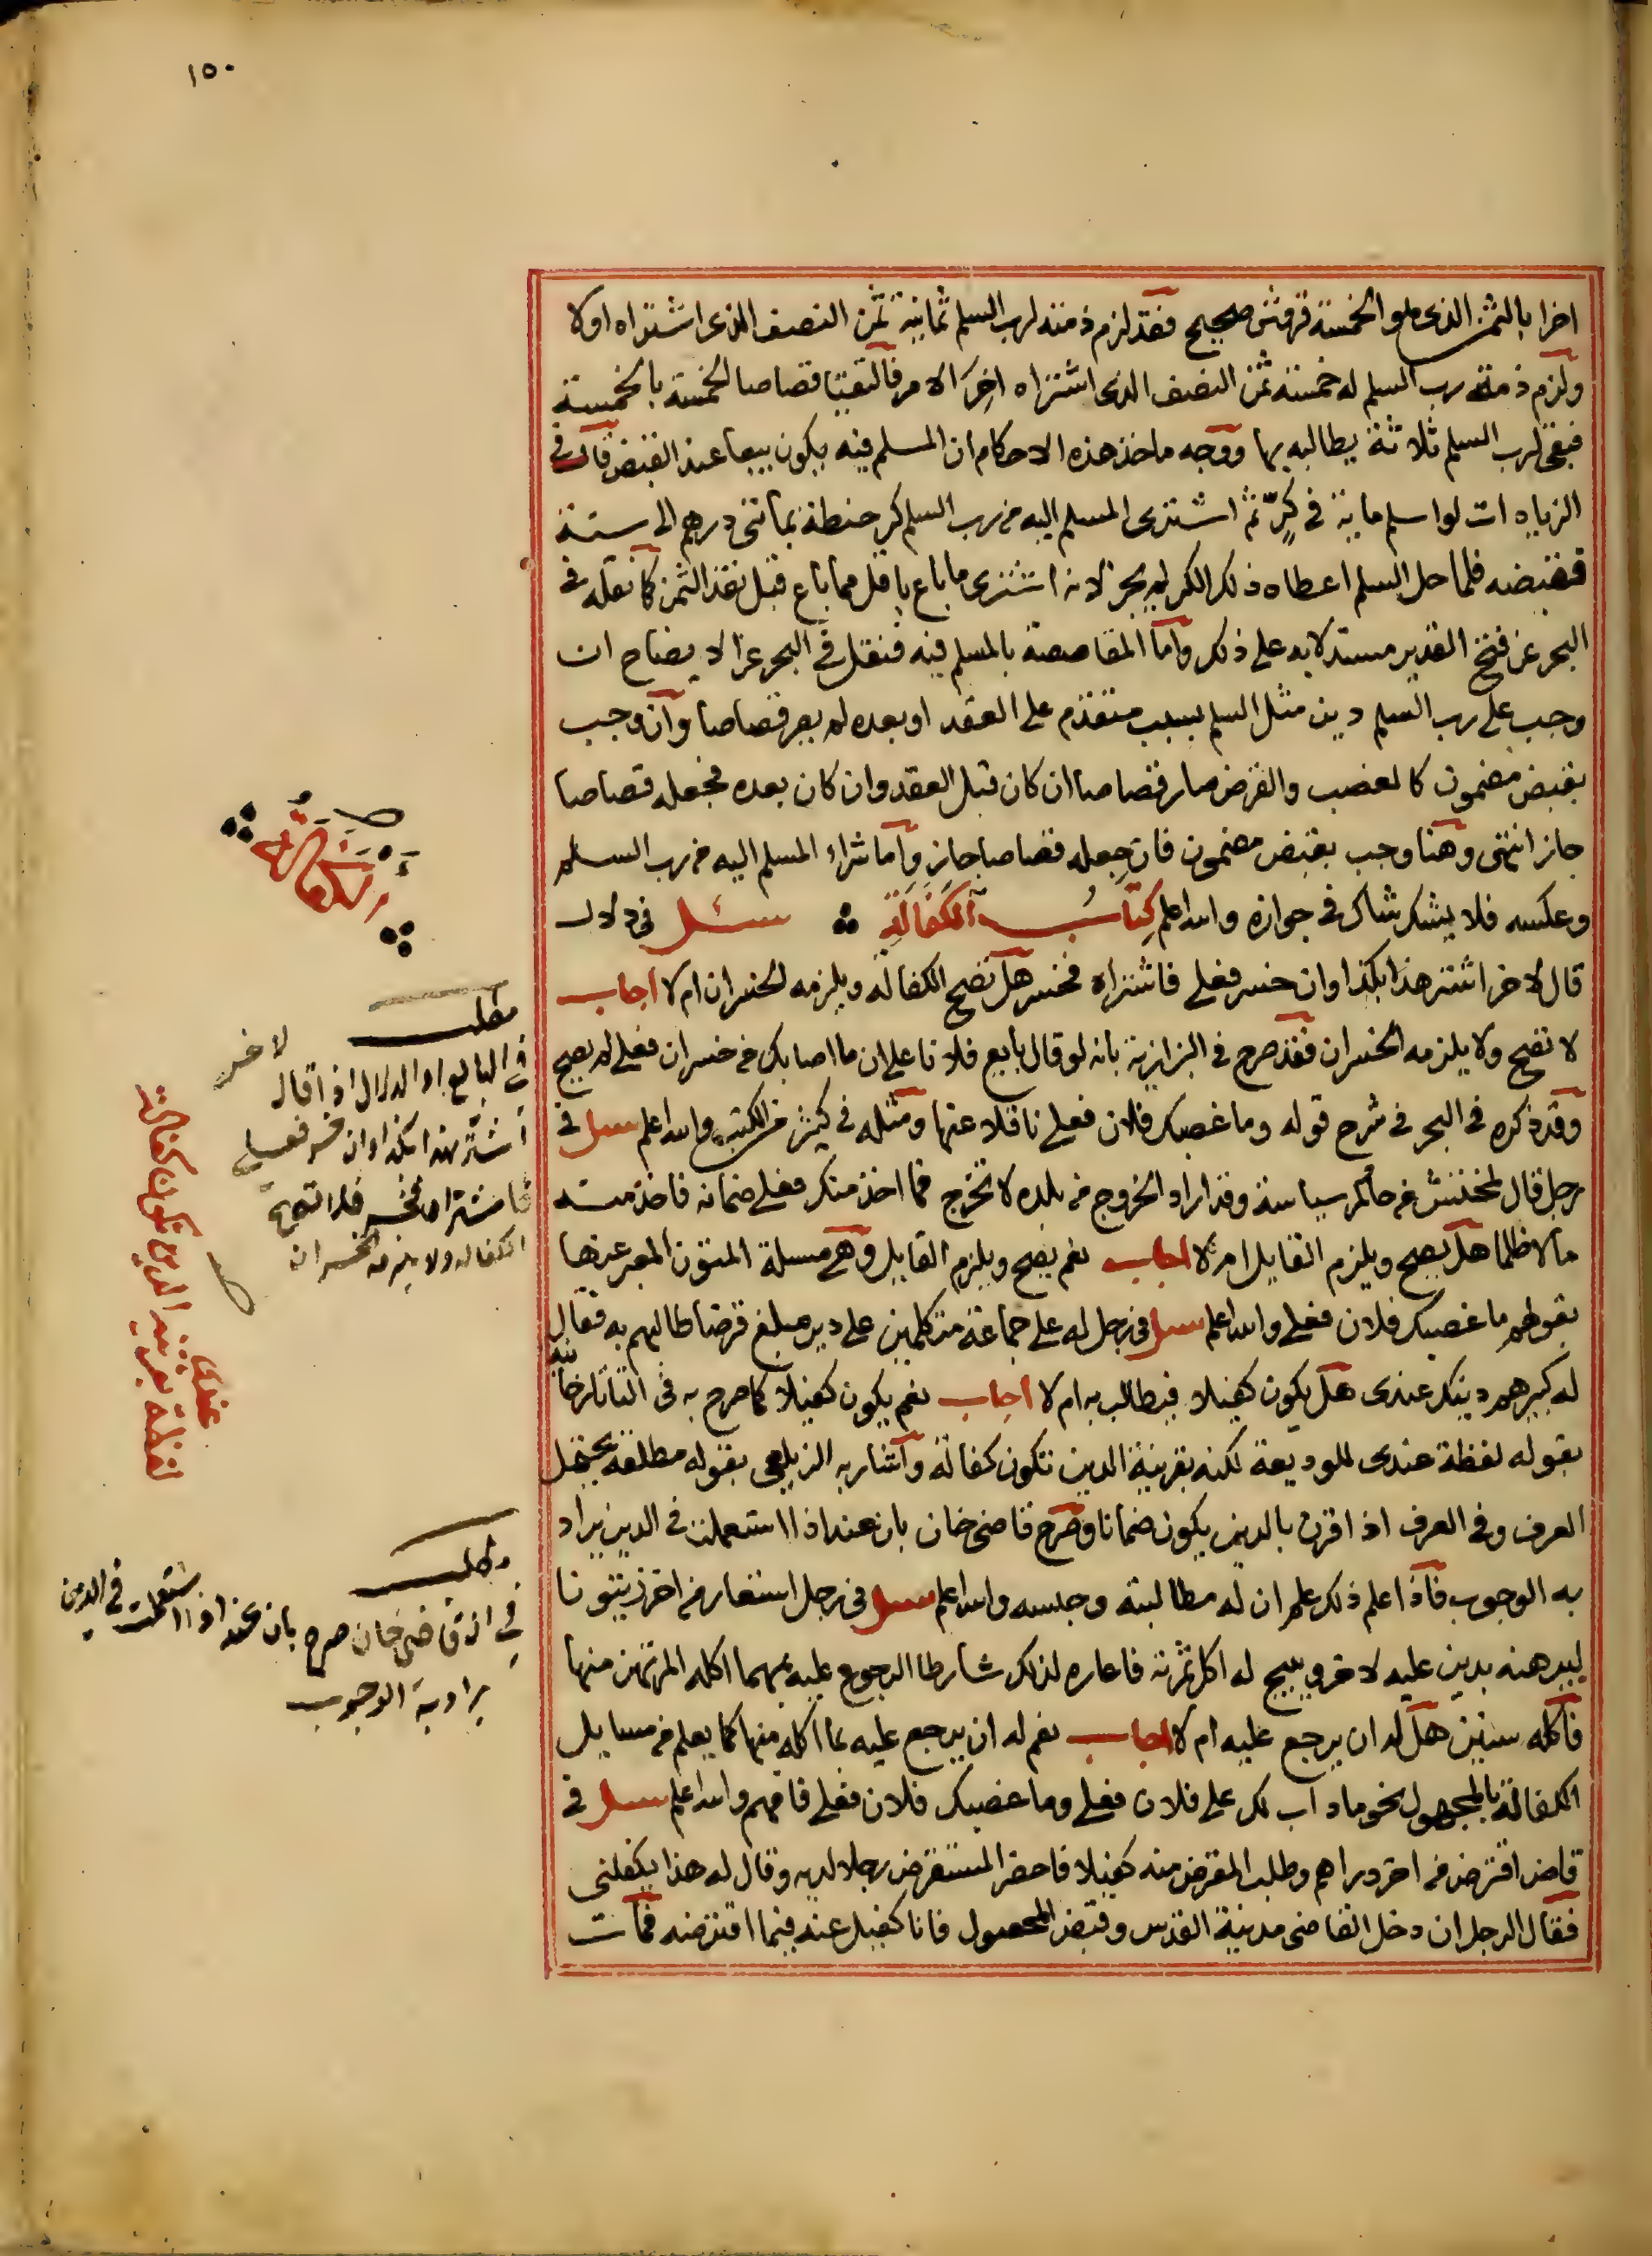 ١٥٠
اخرا بالثمن الذى هو الخمسة قروش صحيح فقد لزم ذمته لرب السلم ثمانية ثمن النصف الذى اشتراه اولا
ولزم ذمة رب السلم له خمسة ثمن النصف الذى اشتراه اخر الامر فالتقيتا قصاصا الخمسة بالخمسة
فبقى لرب السلم ثلاثة يطالبه بها ووجه ماخذ هذه الاحكام ان المسلم فيه يكون بيعا عند القبض قال فى
الزيادات لو اسلم ماية فى كر ثم اشترى المسلم اليه من رب السلم كر حنطة بمائتى درهم الى سنة
فقبضه فلما حل السلم اعطاه ذلك الكر لم يجز لانه اشترى ما باع باقل مما باع قبل نقد الثمن كما نقله فى
البحر عن فتح القدير مستدلا به على ذلك واما المقاصصة بالمسلم فيه فنقل فى البحر عن الايضاح ان
وجب على رب السلم دين مثل السلم بسبب متقدم على العقد او بعده لم يصر قصاصا وان وجب
بقبض مضمون كالغصب والقرض صار قصاصا ان كان قبل العقد وان كان بعده فجعله قصاصا
جاز انتهى وهنا وجب بقبض مضمون فان جعله قصاصا جاز واما شراء المسلم اليه من رب السلم
وعكسه فلا يشك شاك فى جوازه والله اعلم كتاب الكفالة سئل فى دلال
قال لاخر اشتر هذا بكذا وان خسر فعلي فاشتراه فخسر هل تصح الكفالة ويلزمه الخسران ام لا اجاب
لا تصح ولا يلزمه الخسران فقد صرح فى البزازية بانه لو قال بايع فلانا على ان ما اصابك من خسران فعلي لم يصح
وقد ذكره فى البحر فى شرح قوله وما غصبك فلان فعلي ناقلا عنها ومثله فى كثير من الكتب والله اعلم سئل فى
رجل قال لمختش من حاكم سياسة وقد اراد الخروج من بلده لا تخرج فما اخذ منك فعلي ضمانه فاخذ منه
مالا ظلما هل يصح ويلزم القايل ام لا اجاب نعم يصح ويلزم القايل وهى مسلة المتون المعبر عنها
بقولهم ما غصبك فلان فعلي والله اعلم سئل فى رجل له على جماعة متكلمين على دير مبلغ قرضا طالبهم به فقال
له كبيرهم دينك عندى هل يكون كفيلا فيطالب به ام لا اجاب نعم يكون كفيلا كما صرح به فى التاتارخانية
بقوله لفظة عندى للوديعة لكنه بقرينة الدين تكون كفالة واشار به الزيلعى بقوله مطلقه يحتمل
العرف وفى العرف اذا قرن بالدين يكون ضمانا وصرح قاضى خان بان عند اذا استعملت فى الدين يراد
به الوجوب فاذا علم ذلك علم ان له مطالبته وحبسه والله اعلم سئل فى رجل استعار من اخر زيتونا
ليرهنه بدين عليه لاخر ويبيح له اكل ثمرته فاعاره لذلك شارطا الرجوع عليه بمهما اكله المرتهن منها
فاكله سنين هل له ان يرجع عليه ام لا اجاب نعم له ان يرجع عليه بما اكله منها كما يعلم من مسايل
الكفالة بالمجهول نحو ما ذاب لك على فلان فعلي وما غصبك فلان فعلي فافهم والله اعلم سئل فى
قاض اقترض من اخر دراهم وطلب المقرض منه كفيلا فاحضر المستقرض رجلا لديه وقال له هذا يكفلنى
فقال الرجل ان دخل القاضى مدينة القدس وقبض المحصول فانا كفيل عنه فيما اقترضه فمات
الكفالة
مطلب
فى البايع او الدلال اذا قال لاخر
اشتر هذا بكذا وان خسر فعلي
فاشتراه فخسر فلا تصح
الكفالة ولا يلزمه الخسران
لفظة عندى بقرينة الدين تكون كفالة
مطلب
فى ان قاضى خان صرح بان عند اذا استعملت فى الدين
يراد به الوجوب